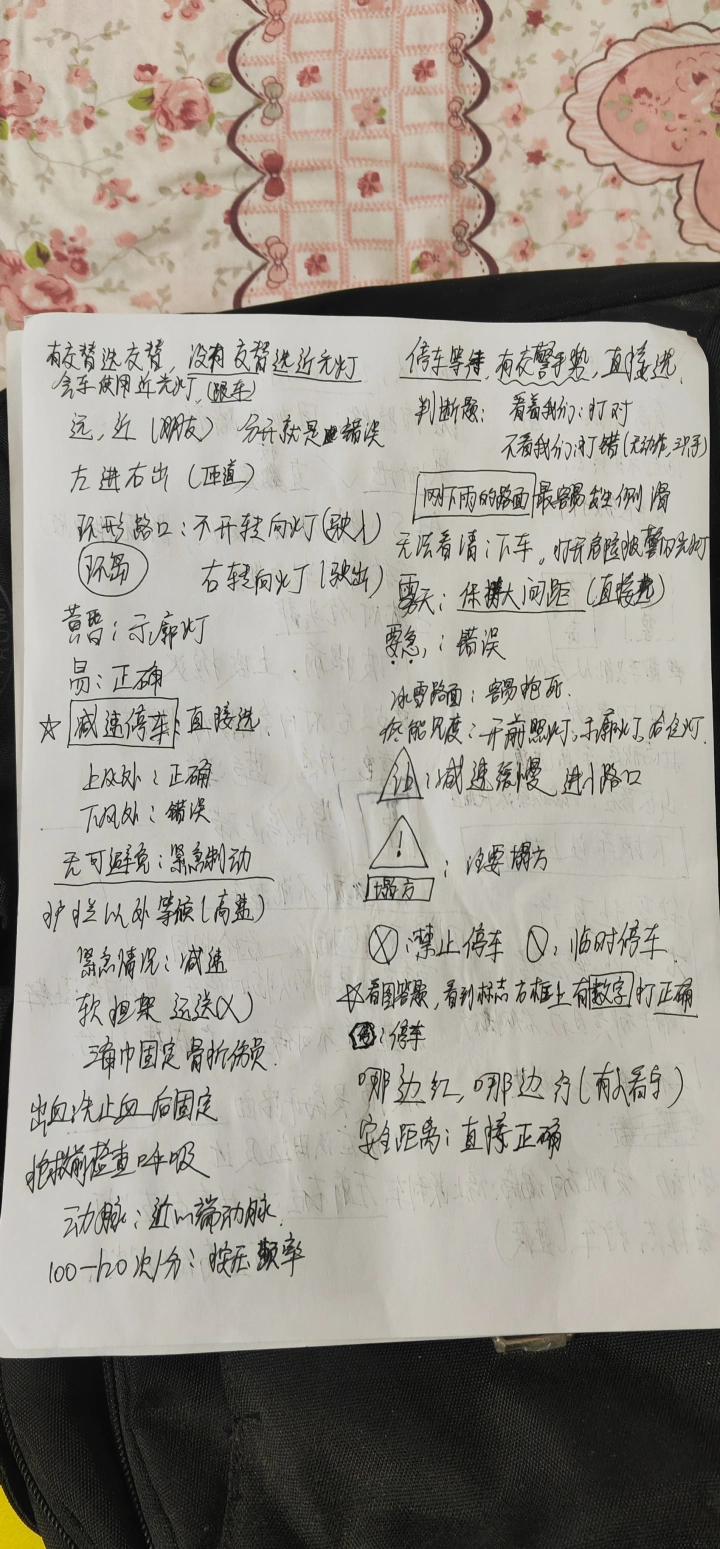 有交替选交替,没有交替选近光灯
会车使用近光灯,(跟车)
远,近(朋友) 分开就是错误
左进右出(匝道)
环形路口:不开转向灯(驶入)
环岛 右转向灯(驶出)
黄昏:示廓灯
易:正确
☆减速停车:直接选
上风处:正确
下风处:错误
无可避免:紧急制动
护栏以外等候(高速)
紧急情况:减速
软担架运送(X)
三角巾固定骨折伤员.
出血:先止血后固定
抢救前检查呼吸
动脉:近心端动脉.
100-120次/分:按压频率
停车等待,有交警手势,直接选.
判断题:看着我们:打对
不看我们:打错(无动作,
刚下雨的路面最容易发生侧滑
无法看清:下车,打开危险报警闪光灯
雾天:保持大间距(直接选)
要急,:错误
冰雪路面:容易抱死.
低能见度:开前照灯,示廓灯,后位灯.
让:减速缓慢进入路口
!
塌方:注意塌方
禁止停车 临时停车.
☆看图答题,看到标志右框上有数字打正确
停:停车
哪边红,哪边行(有人看守)
安全距离:直接正确